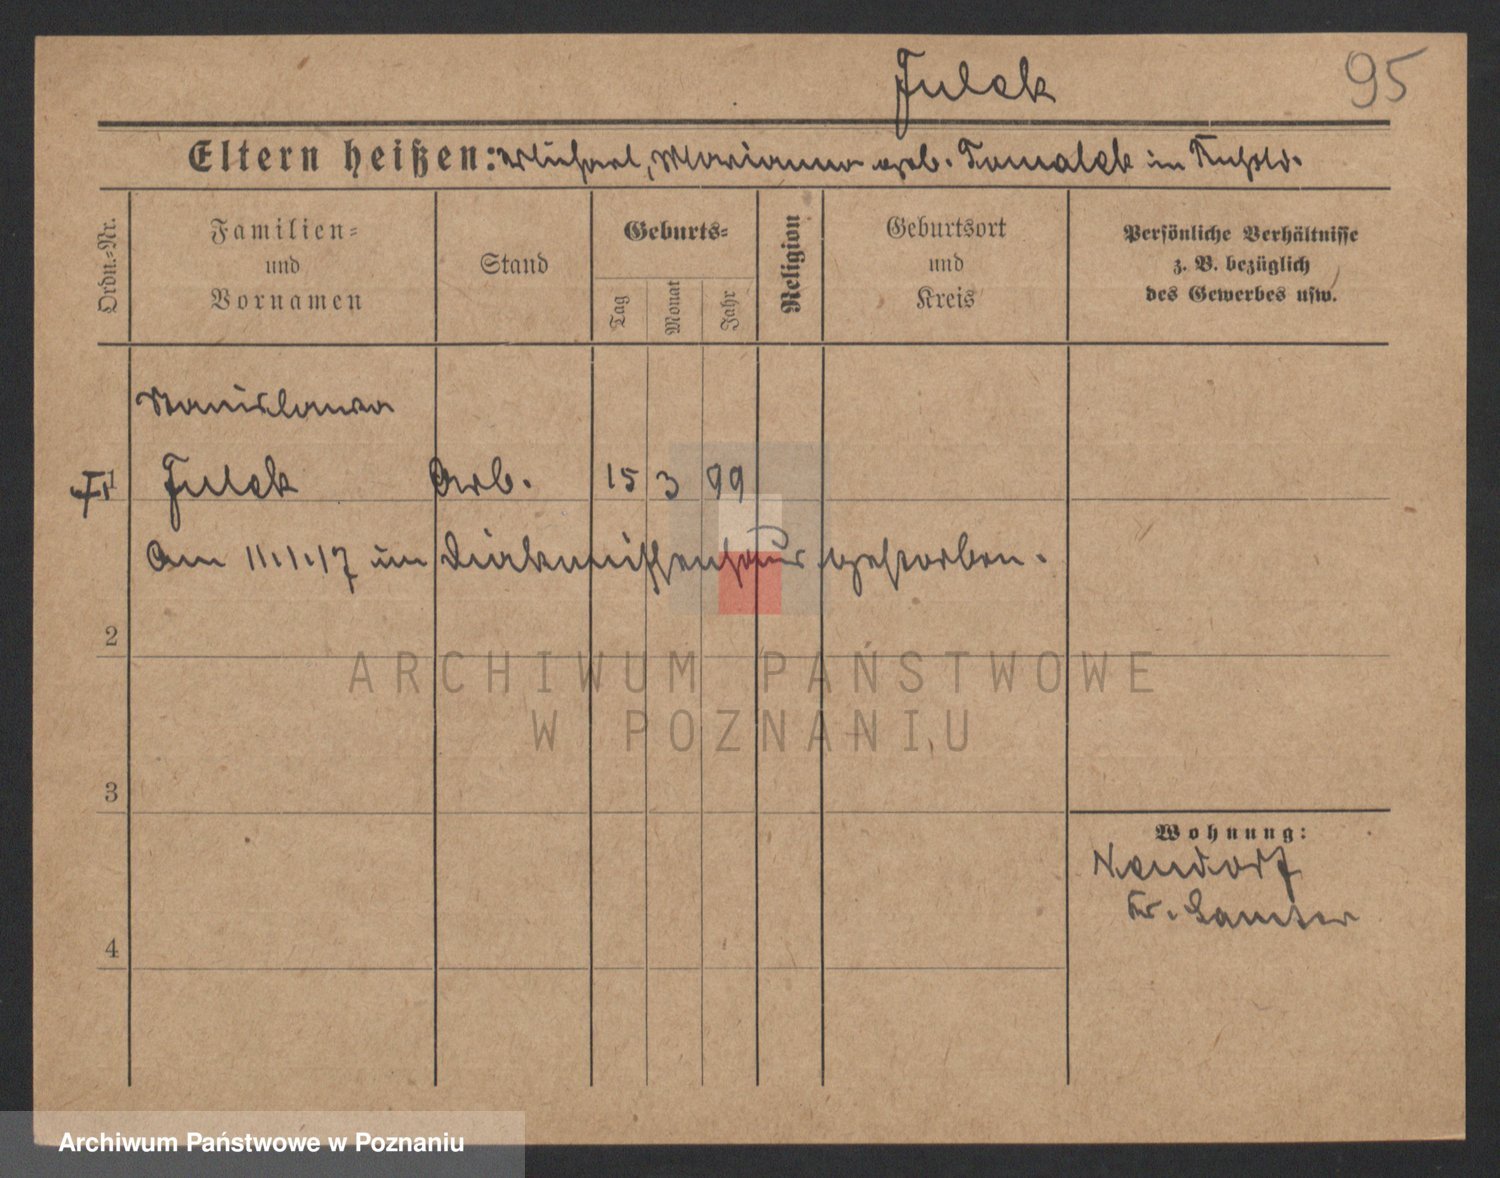 Julek
95
Eltern heißen: Michael, Marianna geb. Tomalek in
Ordn.-Nr.
Familien-
und
Vornamen
Stand
Geburts-
Tag
Monat
Jahr
Religion
Geburtsort
und
Kreis
Persönliche Verhältnisse
z. B. bezüglich
des Gewerbes usw.
Stanislawa
1 Julek Arb. 15 3 99
Am 11.1.17 im Diakonissenhaus gestorben.
2
3
4
Wohnung:
Neudorf
Kr. Samter
ARCHIWUM PAŃSTWOWE
W POZNANIU
Archiwum Państwowe w Poznaniu